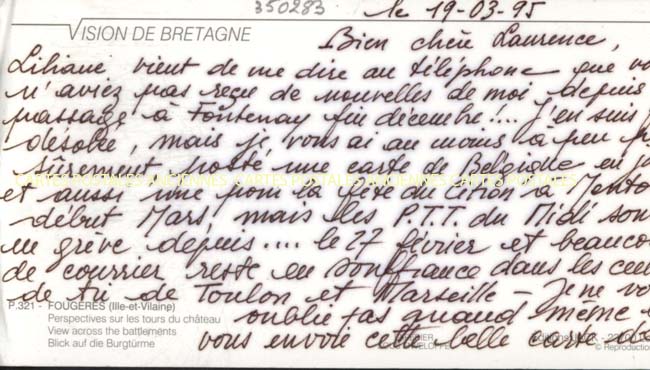 350283
le 19-03-95
VISION DE BRETAGNE
Bien chère Laurence,
Liliane vient de me dire au téléphone que vo
n'aviez pas reçu de nouvelles de moi depuis
passage à Fontenay fin décembre.... J'en suis
désolée, mais je vous ai au moins à peu
sûrement posté une carte de Belgique en
CARTES POSTALES ANCIENNES CARTES POSTALES ANCIENNES CARTES POSTALES
et aussi une pour la fête du citron à Mento
début Mars, mais les P.T.T. du Midi son
en grève depuis.... le 27 février et beauco
de courrier reste en souffrance dans les cen
de tri de Toulon et Marseille - Je ne vo
oublie pas quand même
vous envoie cette belle carte
P.321 - FOUGERES (Ille-et-Vilaine)
Perspectives sur les tours du château
View across the battlements
Blick auf die Burgtürme
© Reproductio